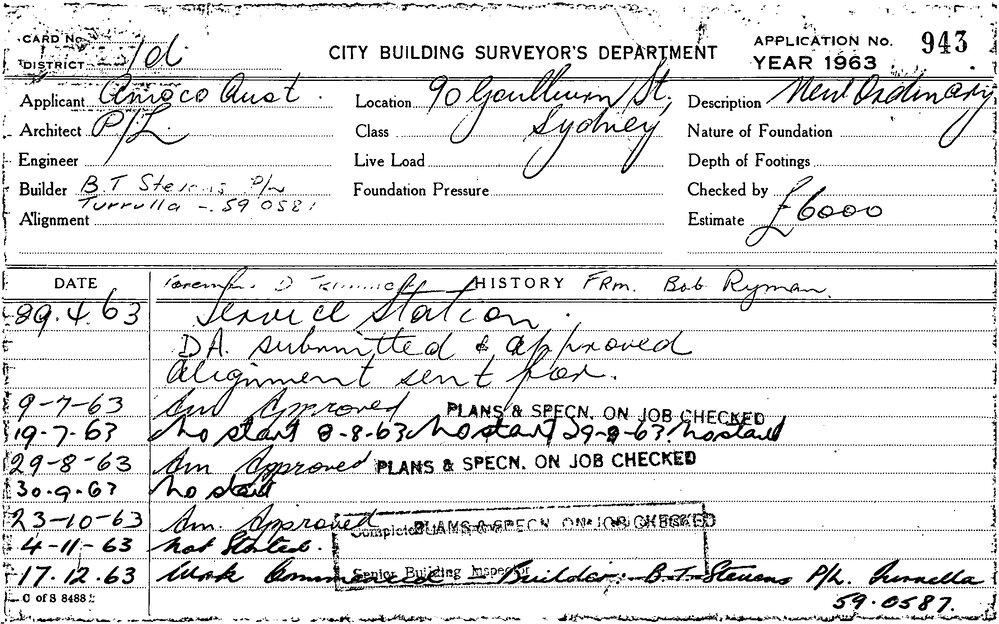 CARD No.
CITY BUILDING SURVEYOR'S DEPARTMENT
APPLICATION No. 943
DISTRICT
YEAR 1963
Applicant Amoco Aust.
Location 90 Goulburn St,
Description New Ordinary
Architect P/L.
Class Sydney
Nature of Foundation
Engineer
Live Load
Depth of Footings
Builder B.T Stevens P/L
Foundation Pressure
Checked by
Turrella - 59 0581
Alignment
Estimate £6000
DATE
HISTORY FRm. Bob Ryman
29.4.63 Service Station.
DA. submitted & approved
Alignment sent for.
9-7-63 Am Approved PLANS & SPECN. ON JOB CHECKED
19-7-63 No start 8-8-63 No start 29-8-63 No start
29-8-63 Am Approved PLANS & SPECN. ON JOB CHECKED
30.9.63 No start
23-10-63 Am. Approved
Completed PLANS & SPECN. ON JOB CHECKED
4-11-63 Not Started.
Senior Building Inspector
17.12.63 Work Commenced - Builder: B.T. Stevens P/L. Turrella
C of S 8488
59.0587.